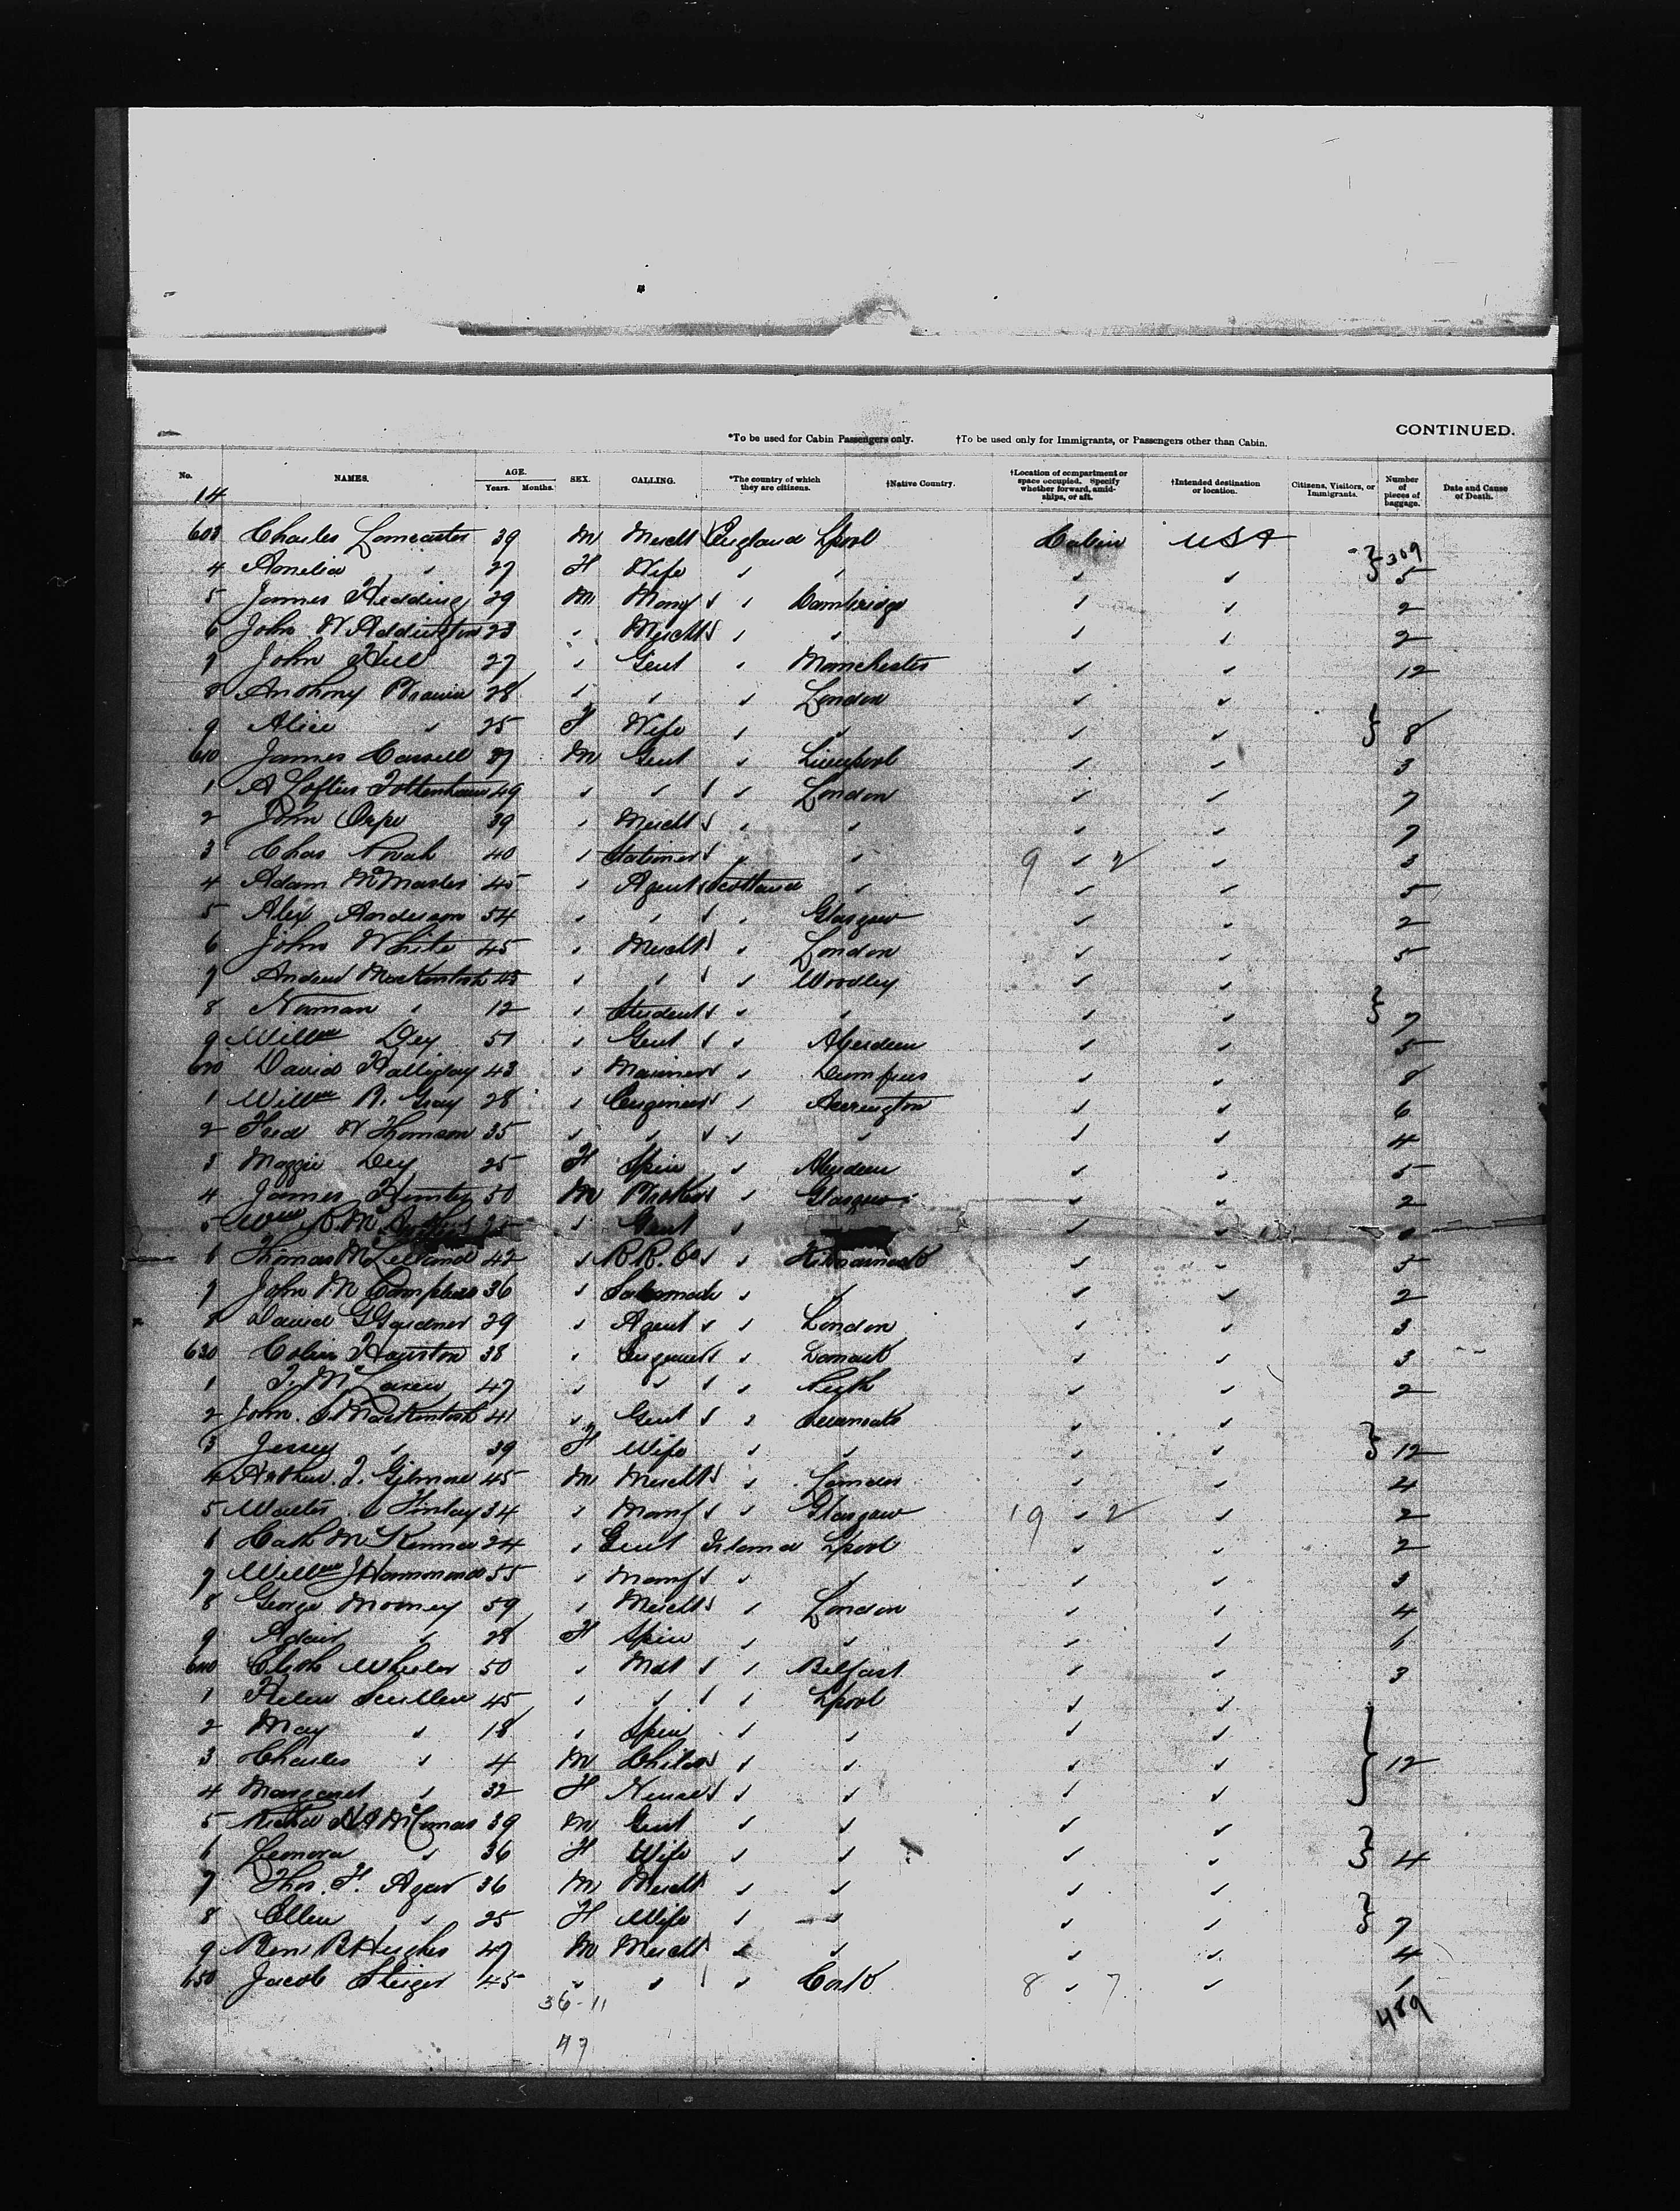 CONTINUED.
*To be used for Cabin Passengers only. †To be used only for Immigrants, or Passengers other than Cabin.
No. NAMES. AGE. Years. Months. SEX. CALLING. *The country of which they are citizens. †Native Country. †Location of compartment or space occupied. Specify whether forward, amidships, or aft. †Intended destination or location. Citizens, Visitors, or Immigrants. Number of pieces of baggage. Date and Cause of Death.
14
603 Charles Lancaster 39 M Mercht England Lpool Cabin USA 309
4 Amelia " 27 F Wife " " " " } 5
5 James Hedding 29 M Manf " " Cambridge " " 2
6 John W Addington 23 " Mercht " " " " 2
7 John Hill 27 " Gent " Manchester " " 12
8 Anthony 28 " " " London " "
9 Alice " 25 F Wife " " " " } 8
610 James 37 M Gent " Liverpool " " 3
1 A Loftus Tottenham 49 " " " London " " 7
2 John Orpe 39 " Mercht " " " " 7
3 Chas Noah 40 " Stationer " " 9 " 2 " 3
4 Adam McMaster 45 " Agent Scotland " " " 5
5 Alex Anderson 54 " " " Glasgow " " 2
6 John White 45 " Mercht " London " " 5
7 Andrew MacKintosh 45 " " " Woodley " "
8 Norman " 12 " Student " " " " } 7
9 Willm Dey 51 " Gent " Aberdeen " " 5
620 David Halliday 43 " Mariner " Dumfries " " 8
1 Willm R. Gray 28 " Engineer " Accrington " " 6
2 Fred W Thomson 35 " " " " " " 4
3 Maggie Dey 25 F Spin " Aberdeen " " 5
4 James Hunter 50 M Broker " Glasgow " " 2
5 Wm R. M. 25 " Gent " " "
Thomas McLelland 42 " R.R. Co " Kilmarnock " " 5
7 John M Campbell 36 " " " " " 2
8 David G Gardner 29 " Agent " London " " 3
630 Colin Houston 38 " Engineer " Lanark " " 3
1 T. McLaren 47 " " " " " 2
2 John S MacKintosh 41 " Gent " " "
3 Jessey " 39 F Wife " " " " } 12
4 Arthur J. Gilmore 45 M Mercht " London " " 4
5 Walter Finlay 34 " Manf " Glasgow 19 " 2 " 2
6 Cath McKenna 24 " Gent Ireland Lpool " " 2
7 Willm J Hammond 55 " Manf " " " " 3
8 George Mooney 59 " Mercht " London " " 4
9 Adair " 28 F Spin " " " "
640 Elish Wheeler 50 " " Belfast " " 3
1 Helen Scullen 45 " " " Lpool " "
2 May " 18 " Spin " " " "
3 Charles " 4 M Child " " " " } 12
4 Margaret " 32 F Nurse " " " "
5 39 M Gent " " " "
6 Leonora " 36 F Wife " " " " } 4
7 Thos. F. Agar 36 M Mercht " " " "
8 Ellen " 25 F Wife " " " " } 7
9 Ben R Hughes 47 M Mercht " " " " 4
650 Jacob Steiger 45 " " " Cork 8 " 7 "
36-11
47
489